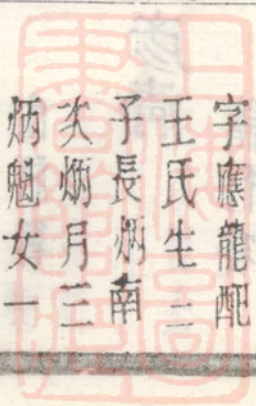 字應龍配
王氏生三
子長炳南
次炳月三
炳魁女一